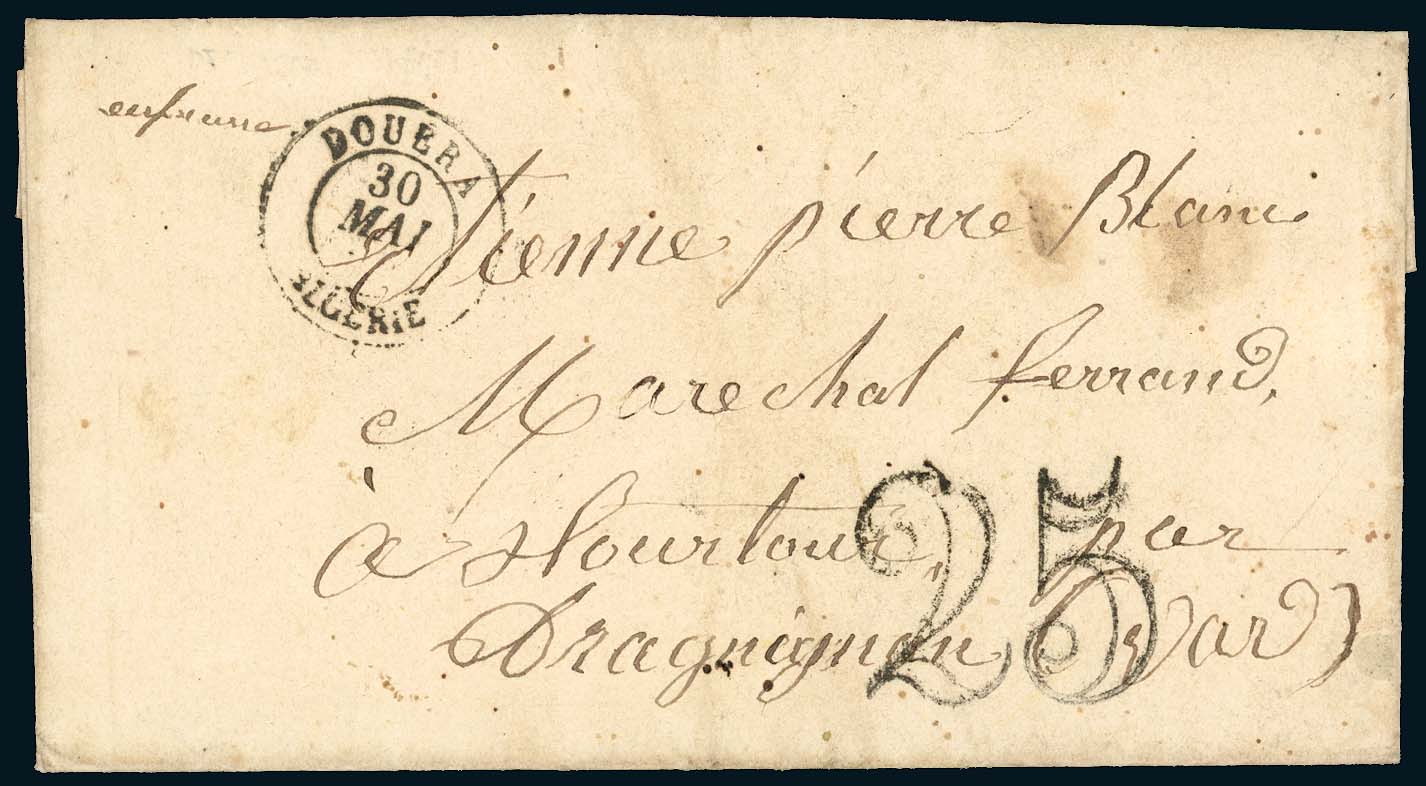 en france
DOUÉRA
30
MAI
ALGERIE
Etienne pierre Blanc
Marechal ferrand,
à Tourtour, par
Draguignan (Var)
25